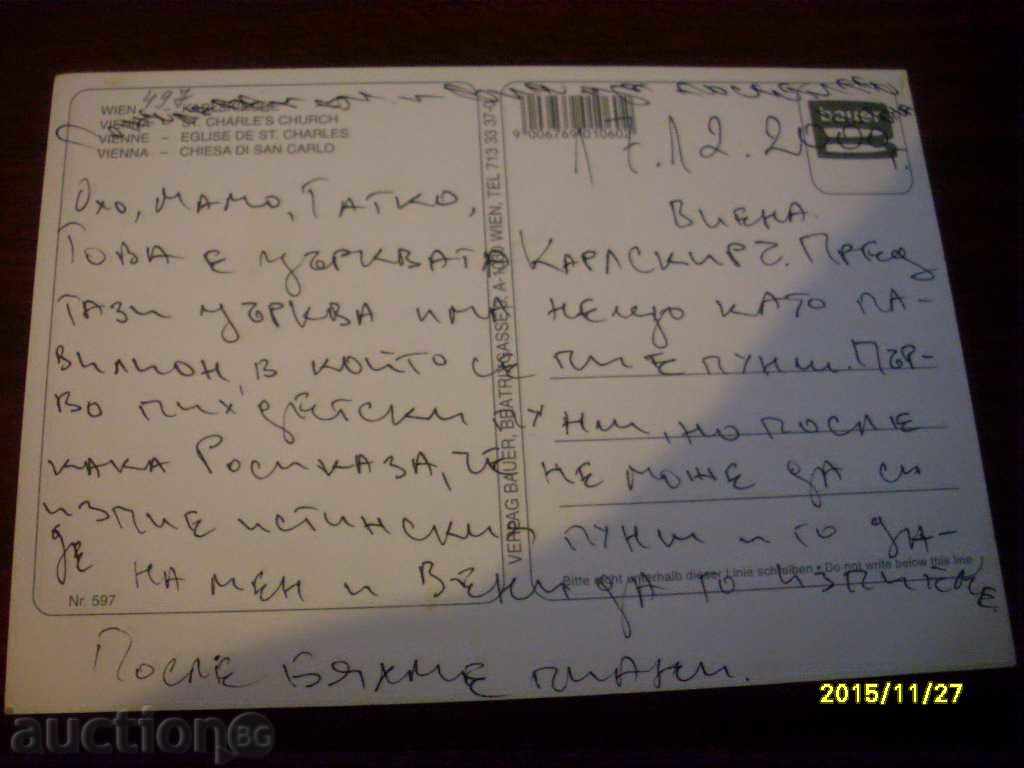 WIEN 497
VIENNA – ST. CHARLE'S CHURCH
VIENNE – EGLISE DE ST. CHARLES
VIENNA – CHIESA DI SAN CARLO
9 006769 010602
bauer
17.12.2000 г.
VERLAG BAUER, BEATRIXGASSE 3, A-1030 WIEN, TEL 713 33 37-0
Охо, мамо, татко,
Виена.
Това е църквата Карлскирч. Пред
тази църква има нещо като па-
вилион, в който се пие пунш. Пър-
во пих детски пунш, но после
кака Роси каза, че не може да си
изпие истинския пунш и го да-
де на мен и Вени да го изпием.
Bitte nicht unterhalb dieser Linie schreiben • Do not write below this line
Nr. 597
После бяхме пияни.
2015/11/27
auctionBG